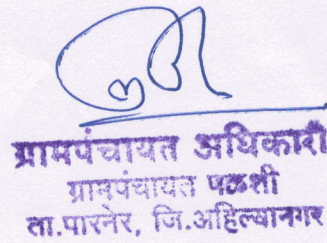 ग्रामपंचायत अधिकारी
ग्रामपंचायत पळशी
ता.पारनेर, जि.अहिल्यानगर